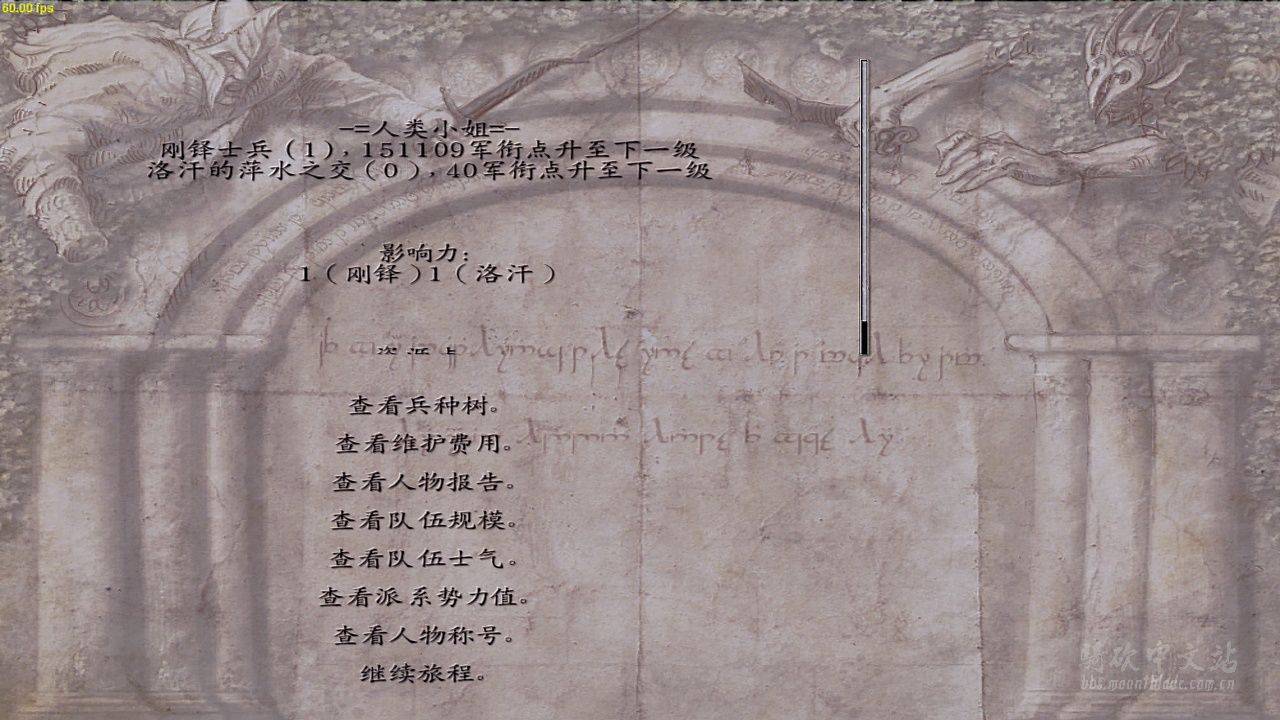 60.00 fps
-=人类小姐=-
刚铎士兵（1），151109军衔点升至下一级
洛汗的萍水之交（0），40军衔点升至下一级
影响力：
1（刚铎）1（洛汗）
查看兵种树。
查看维护费用。
查看人物报告。
查看队伍规模。
查看队伍士气。
查看派系势力值。
查看人物称号。
继续旅程。
中文站